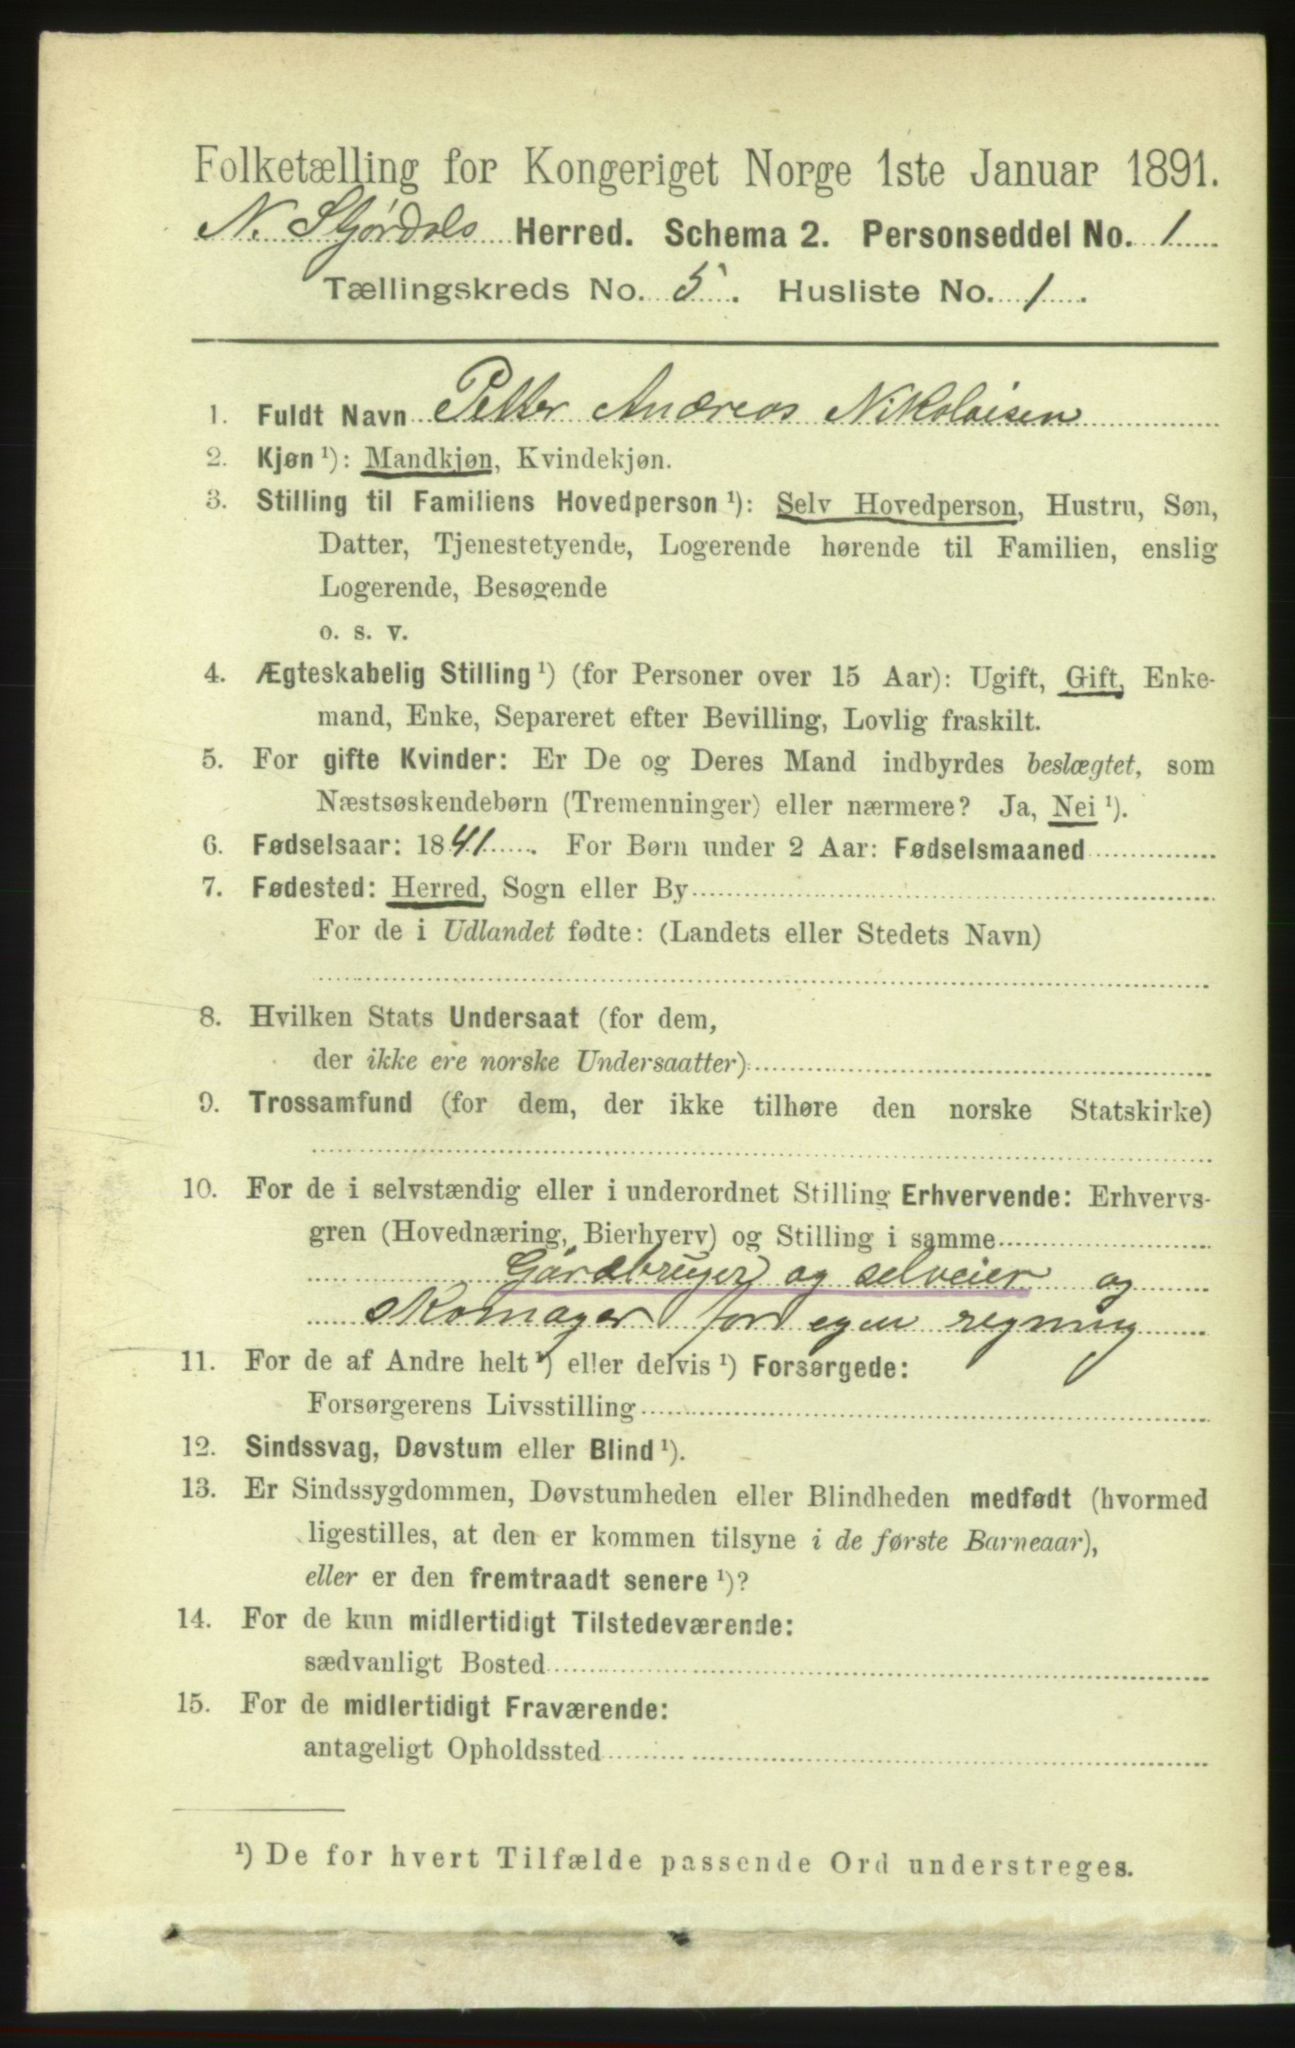 Folketælling for Kongeriget Norge 1ste Januar 1891.
N. Stjørdals Herred. Schema 2. Personseddel No. 1
Tællingskreds No. 5. Husliste No. 1.
1. Fuldt Navn Petter Andreas Nikolaisen
2. Kjøn ¹): Mandkjøn, Kvindekjøn.
3. Stilling til Familiens Hovedperson ¹): Selv Hovedperson, Hustru, Søn,
Datter, Tjenestetyende, Logerende hørende til Familien, enslig
Logerende, Besøgende
o. s. v.
4. Ægteskabelig Stilling ¹) (for Personer over 15 Aar): Ugift, Gift, Enke-
mand, Enke, Separeret efter Bevilling, Lovlig fraskilt.
5. For gifte Kvinder: Er De og Deres Mand indbyrdes beslægtet, som
Næstsøskendebørn (Tremenninger) eller nærmere? Ja, Nei ¹).
6. Fødselsaar: 1841. For Børn under 2 Aar: Fødselsmaaned
7. Fødested: Herred, Sogn eller By
For de i Udlandet fødte: (Landets eller Stedets Navn)
8. Hvilken Stats Undersaat (for dem,
der ikke ere norske Undersaatter)
9. Trossamfund (for dem, der ikke tilhøre den norske Statskirke)
10. For de i selvstændig eller i underordnet Stilling Erhvervende: Erhvervs-
gren (Hovednæring, Bierhverv) og Stilling i samme
Gårdbruger og selveier og
skomager for egen regning
11. For de af Andre helt ¹) eller delvis ¹) Forsørgede:
Forsørgerens Livsstilling
12. Sindssvag, Døvstum eller Blind ¹).
13. Er Sindssygdommen, Døvstumheden eller Blindheden medfødt (hvormed
ligestilles, at den er kommen tilsyne i de første Barneaar),
eller er den fremtraadt senere ¹)?
14. For de kun midlertidigt Tilstedeværende:
sædvanligt Bosted
15. For de midlertidigt Fraværende:
antageligt Opholdssted
¹) De for hvert Tilfælde passende Ord understreges.